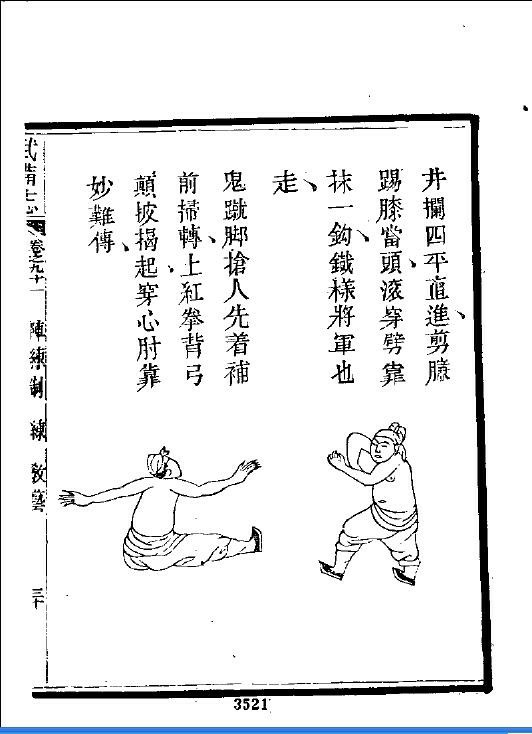 井攔四平直進剪臁
踢膝當頭滚穿劈靠
抹一鈎鐵樣將軍也
走
鬼蹴脚搶人先着補
前掃轉上紅拳背弓
顛披揭起穿心肘靠
妙難傳
武備志
卷之九十一
陣練制
練
教藝
三十
3521